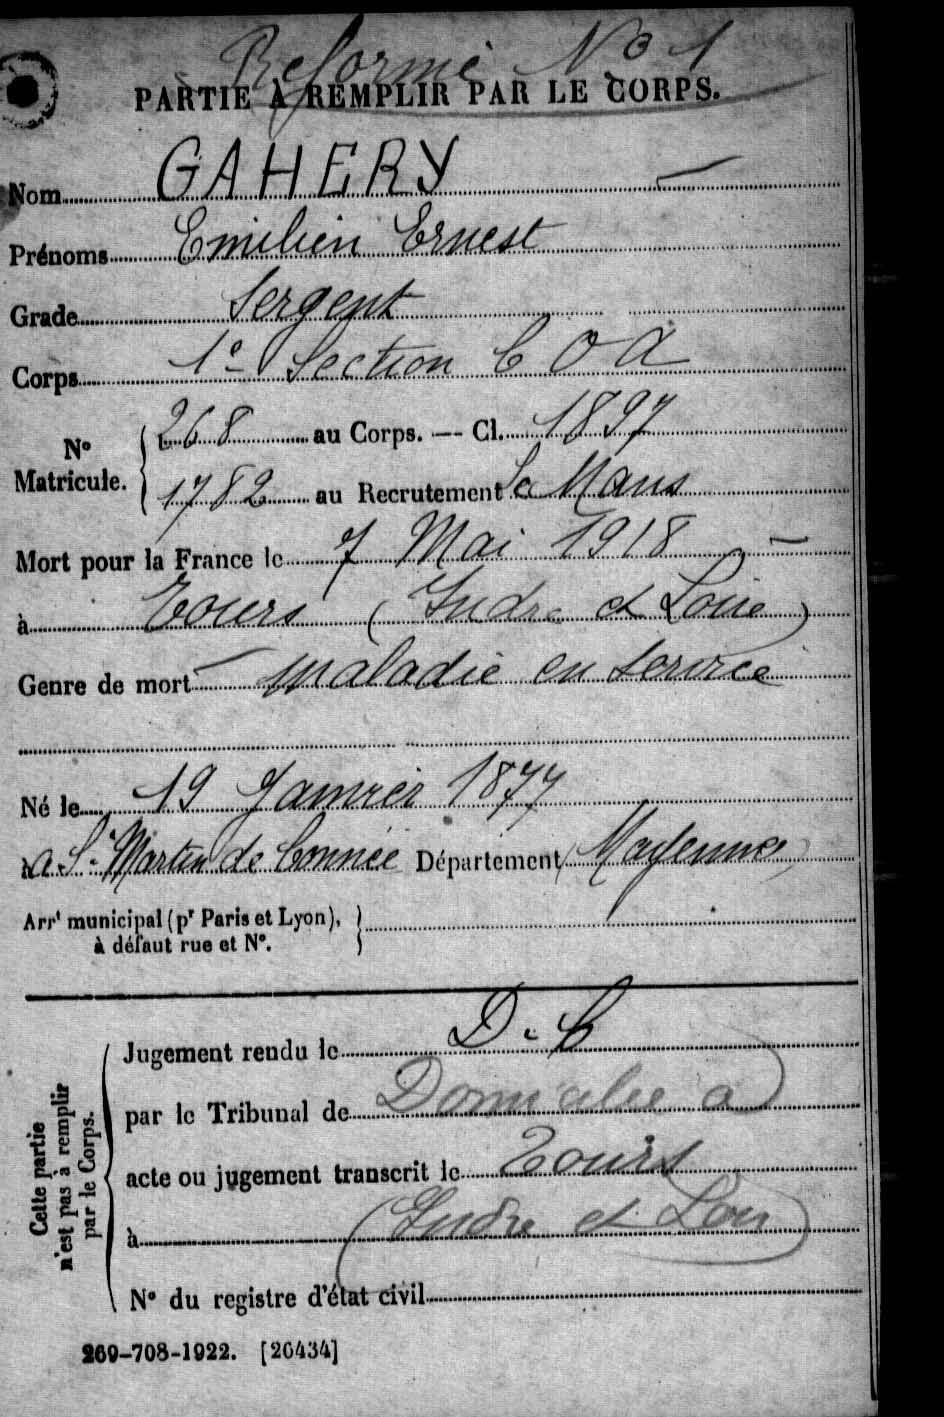 Reformé No 1
PARTIE À REMPLIR PAR LE CORPS.
Nom GAHERY
Prénoms Emilien Ernest
Grade Sergent
Corps 1e Section C O A
N° Matricule. 268 au Corps. — Cl. 1897
1782 au Recrutement Le Mans
Mort pour la France le 7 Mai 1918
à Tours (Indre et Loire)
Genre de mort maladie en service
Né le 19 Janvier 1877
à St Martin de Connée Département (Mayenne)
Arrt municipal (pr Paris et Lyon), à défaut rue et N°.
Cette partie n'est pas à remplir par le Corps.
Jugement rendu le D. C
par le Tribunal de Domicilié à
acte ou jugement transcrit le Tours
à (Indre et Loir)
N° du registre d'état civil
269-708-1922. [26434]